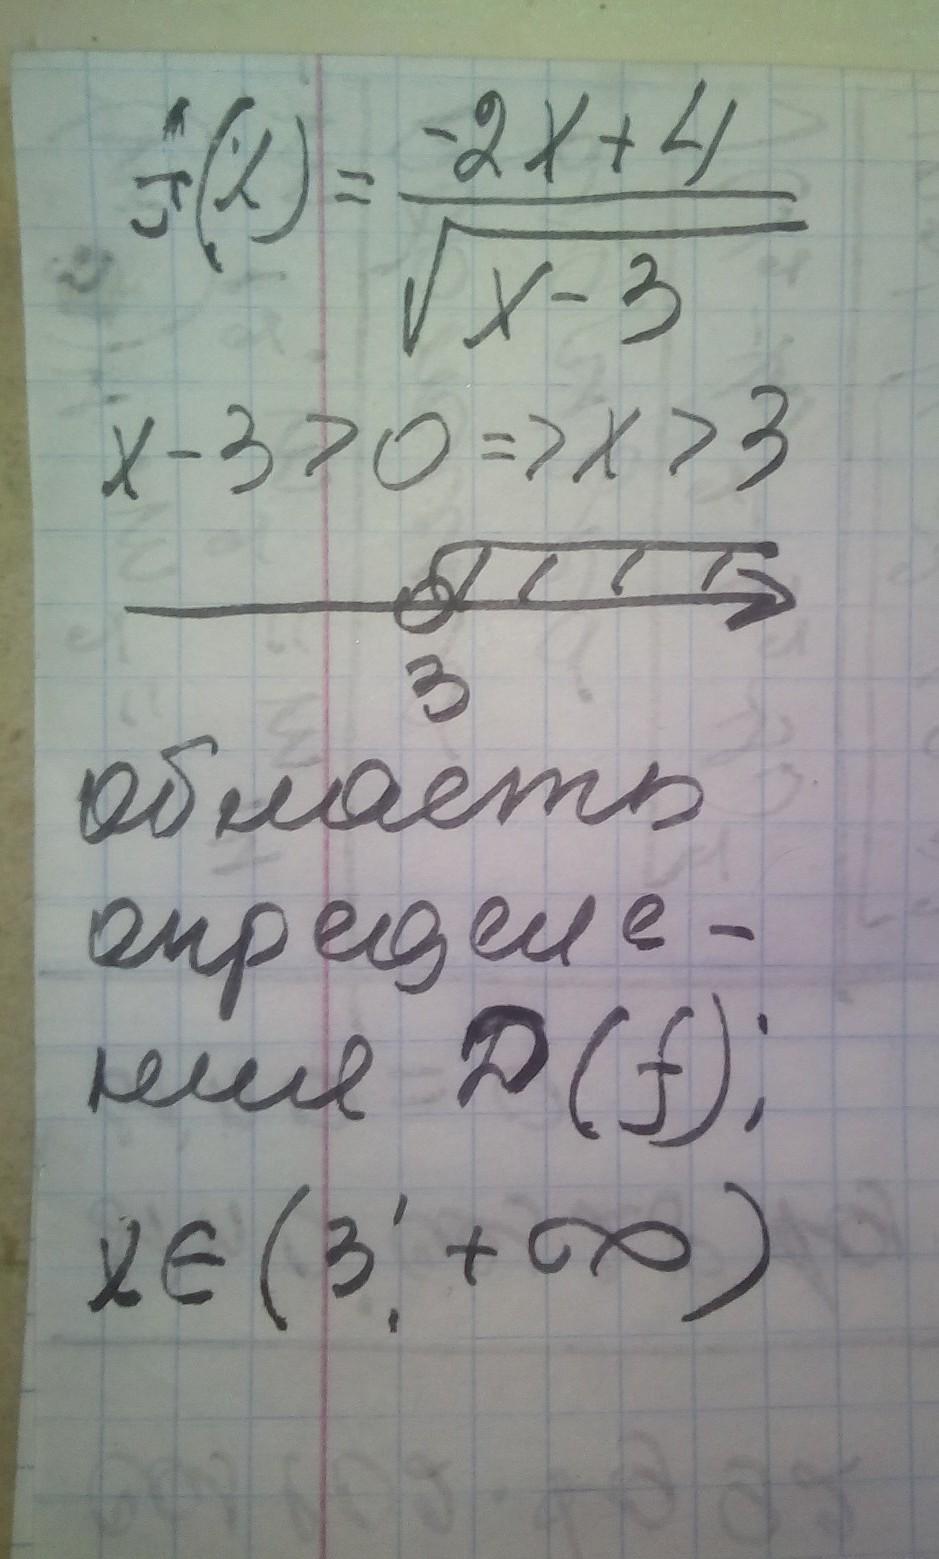 f(x) = -2x+4 / √x-3
x-3>0 => x>3
3
область
определе-
ния D(f);
x∈(3; +∞)